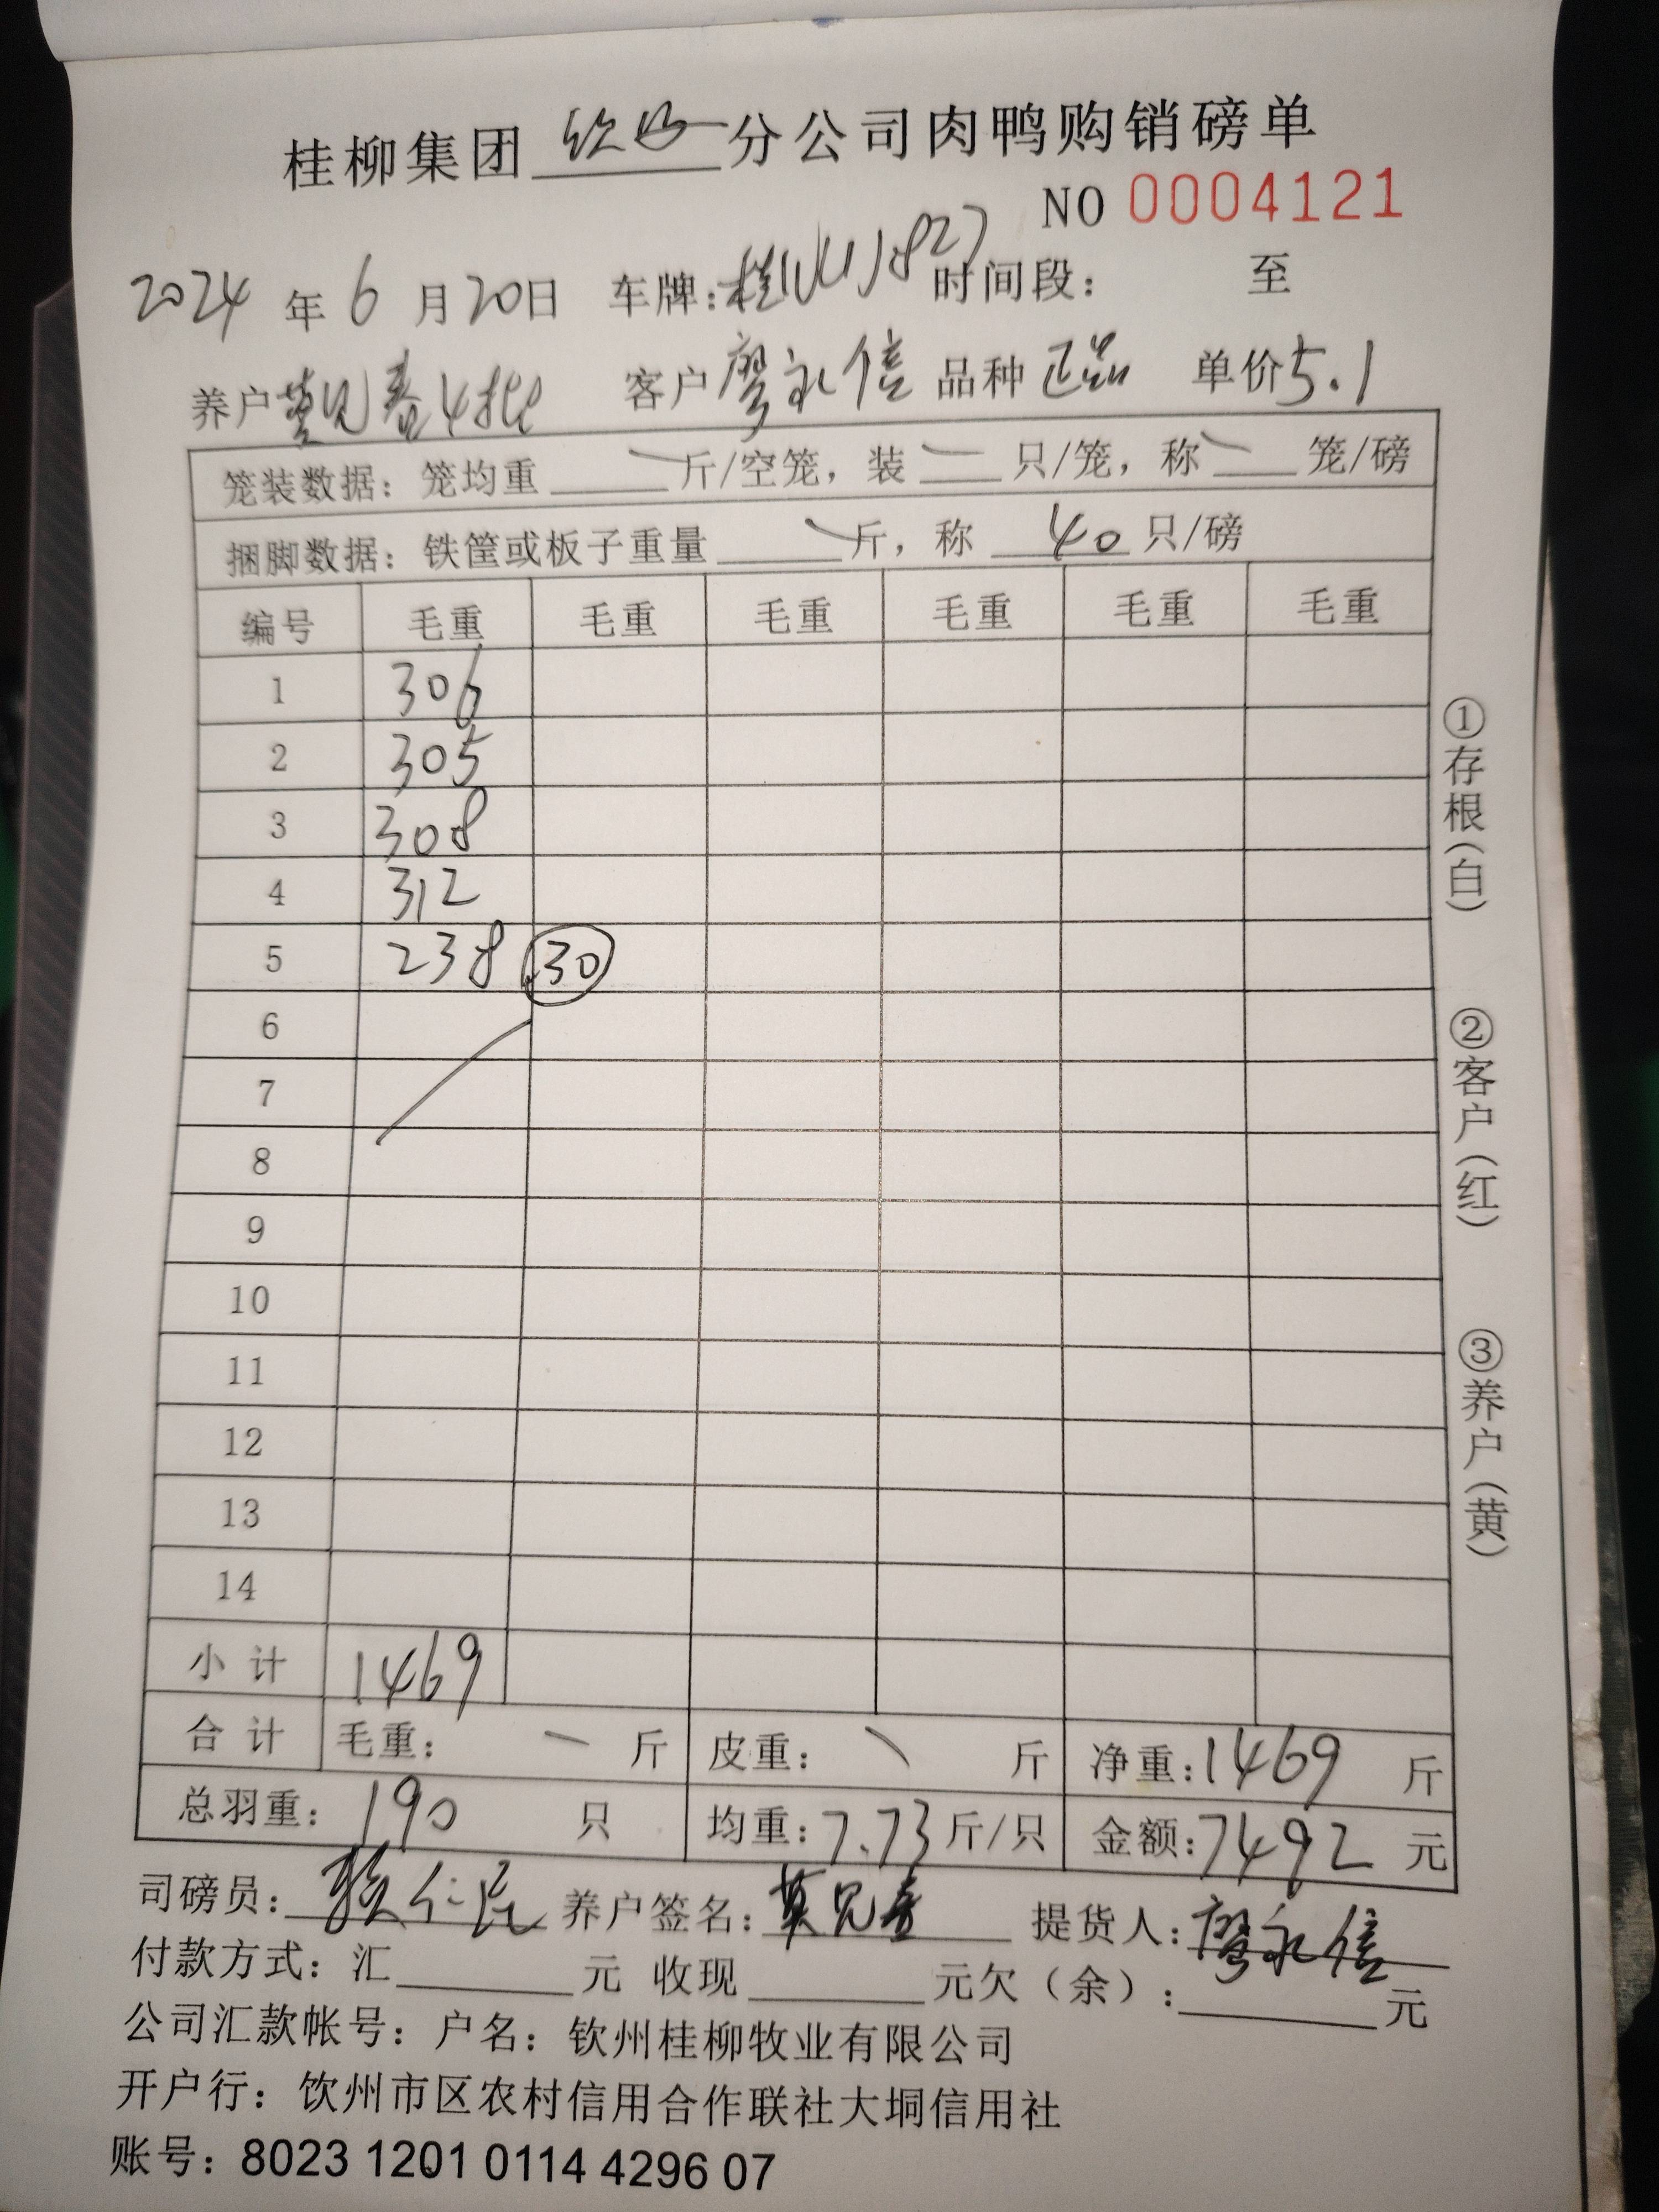 桂柳集团 钦州 分公司肉鸭购销磅单
NO 0004121
2024 年 6 月 20日 车牌: 时间段: 至
养户 莫见春4批 客户 廖永信 品种 正品 单价 5.1
笼装数据: 笼均重 斤/空笼, 装 只/笼, 称 笼/磅
捆脚数据: 铁筐或板子重量 斤, 称 40 只/磅
编号 毛重 毛重 毛重 毛重 毛重 毛重
1 306
2 305
3 308
4 312
5 238 30
6
7
8
9
10
11
12
13
14
小计 1469
合计 毛重: 斤 皮重: 斤 净重:1469 斤
总羽重: 190 只 均重:7.73斤/只 金额:7492 元
司磅员: 养户签名: 莫见春 提货人: 廖永信
付款方式: 汇 元 收现 元欠(余): 元
公司汇款帐号: 户名: 钦州桂柳牧业有限公司
开户行: 饮州市区农村信用合作联社大垌信用社
账号: 8023 1201 0114 4296 07
①存根(白)
②客户(红)
③养户(黄)